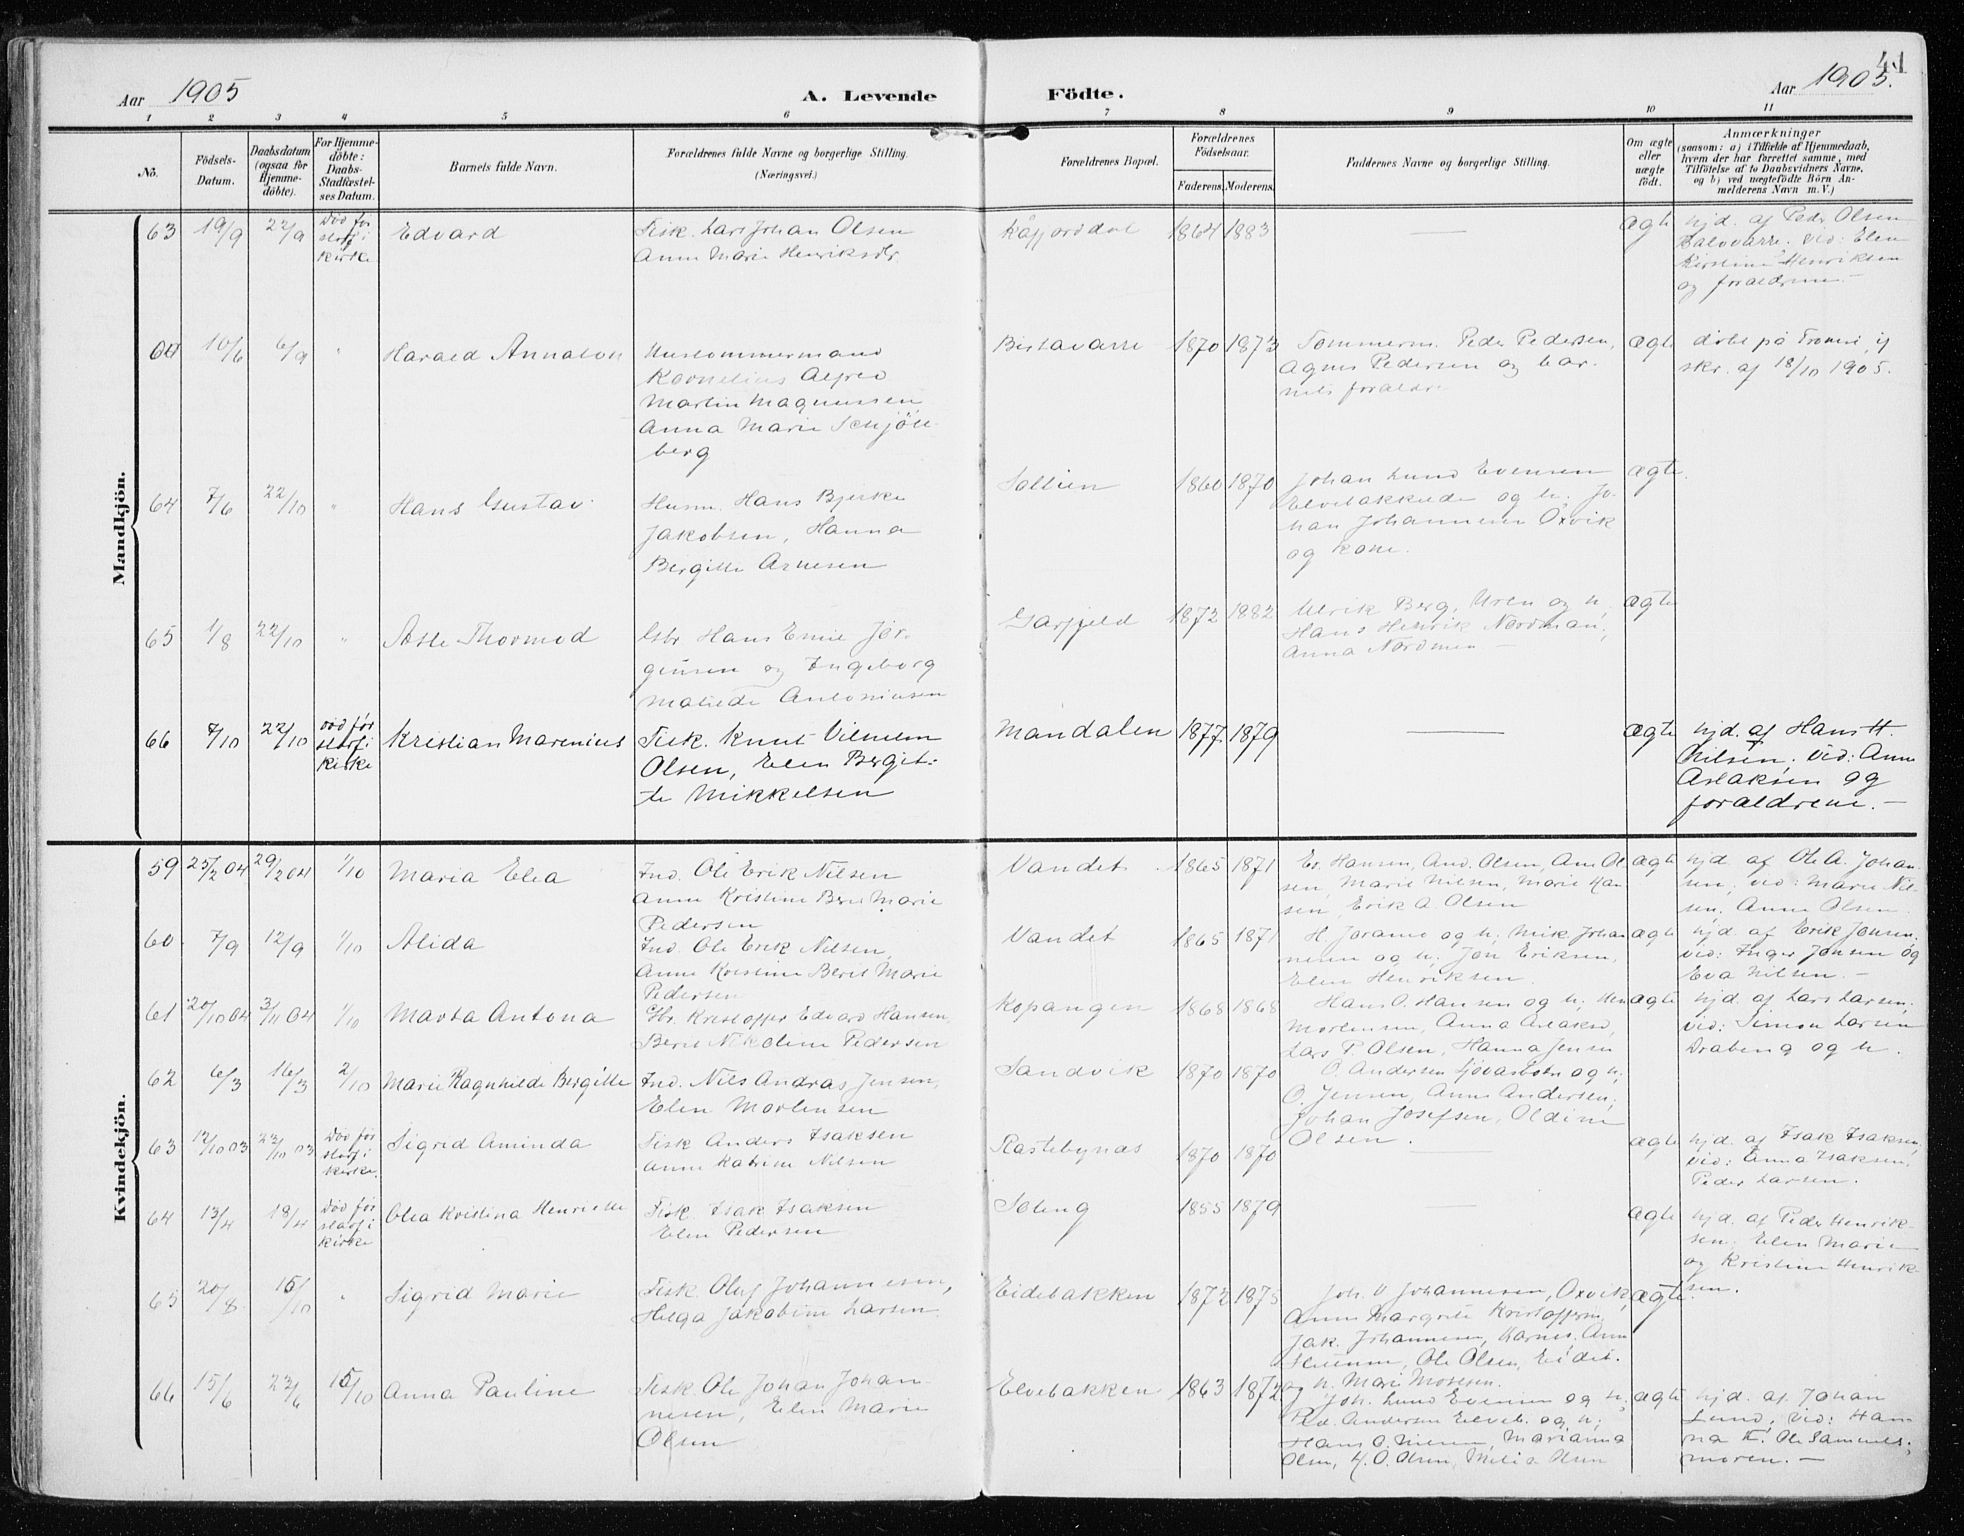 41
Aar 1905
A. Levende Födte.
Aar 1905.
1 2 3 4 5 6 7 8 9 10 11
No.
Födsels-
Datum.
Daabsdatum
(ogsaa för
Hjemme-
döbte).
For Hjemme-
döbte:
Daabs-
Stadfæstel-
ses Datum.
Barnets fulde Navn.
Forældrenes fulde Navne og borgerlige Stilling.
(Næringsvei.)
Forældrenes Bopæl.
Forældrenes
Födselsaar.
Faderens. Moderens.
Faddernes Navne og borgerlige Stilling.
Om ægte
eller
uægte
födt.
Anmærkninger
(saasom: a) i Tilfælde af Hjemmedaab,
hvem der har forrettet samme, med
Tilföielse af to Daabsvidners Navne,
og b) ved uægtefödte Börn An-
melderens Navn m. V.)
Mandkjön.
63 19/9 22/9 Död før
stadf i
kirke
Edvard
Fisk. Lars Johan Olsen
Anne Marie Henriksdr.
Kåfjorddal 1864 1883 — ægte
hjd. af Peder Olsen
vid: Elen
Kirstine Henriksen
og forældrene. —
10/6 6/9 "
Harald Annaton
Kornelius Alfred
Martin Magnussen
Anna Marie Schjöle-
berg
Birtavarre 1870 1873
Tømmerm. Peder Pedersen,
Agnes Pedersen og bar-
nets forældre
ægte
døbt på Tromsö, if
skr. af 18/10 1905.
64 7/6 22/10 "
Hans Gustav
Husm. Hans Bjerke
Jakobsen, Hanna
Bergitte Arnesen
1860 1870
Johan Lund Evensen
Elvebakken og h. Jo-
han Johannesen Oxvik
og kone.
ægte.
65 1/8 22/10 "
Asle Thormod
Gbr Hans Emil Jør-
gensen og Ingeborg
Matilde Antoniusen
Garfjeld 1872 1882
Ulrik Berg, Uren og h.
Hans Henrik Nordman,
Anna Nordmen —
ægte
66 7/10 22/10 død før
stadf i
kirke
Kristian Marenius
Fisk. Knut Vilhelm
Olsen, Elen Bergit-
te Mikkelsen
Mandalen 1877 1879 — ægte
hjd. af Hans H.
Nilsen, vid: Anne
Aslaksen og
forældrene. —
Kvindekjön.
59 25/2 04 29/2 04 1/10
Maria Elea
Ind. Ole Erik Nilsen
Anne Kristine Berit Marie
Pedersen
Vandet 1865 1871
Er. Hansen, And. Olsen, Ane Ol-
sen, Marie Nilsen, Marie Han-
sen, Erik A. Olsen
ægte
hjd. af Ole A. Johan-
sen, vid: Marie Nil-
sen. Anne Olsen.
60 7/9 12/9 1/10
Alida
Ind. Ole Erik Nilsen,
Anne Kristine Berit Marie
Pedersen
Vandet 1865 1871
og h, Mik. Johan-
nesen og h. Jon Eriksen,
Elen Henriksen.
ægte
hjd. af Erik Jonsen,
vid: Inger Jonsen og
Eva Nilsen. —
61 20/10 04 3/11 04 1/10
Marta Antona
Gbr. Kristoffer Edvard Hansen,
Berit Nikoline Pedersen
Kopangen 1868 1868
Hans O. Hansen og h,
Mortensen, Anna
Lars P. Olsen, Hanna Jensen
ægte
hjd. af Lars Larsen,
vid: Simon Larsen
Drabeng og h.
62 6/3 16/3 2/10
Marie Ragnhilde Bergitte
Ind. Nils Andras Jensen,
Elen Mortensen
Sandvik 1870 1870
O. Andersen og h,
O. Jensen, Anne Andersen,
Johan Josefsen, Oldine
Olsen.
63 12/10 03 23/10 03 Död før
stadf i
kirke.
Sigrid Aminda
Fisk Anders Isaksen
Anne Katrine Nilsen
Rastebynæs 1870 1870 — ægte
hjd. af Isak Isaksen,
vid: Anna Isaksen,
Peder Larsen.
64 13/4 18/4 Död før
stadf i
kirke
Olea Kristina Henriette
Fisk. Isak Isaksen
Elen Pedersen
Soleng 1855 1879 — ægte
hjd. af Peder Henrik-
sen, Elen Marie
og Kristine Henrik-
sen.
65 20/8 15/10 "
Sigrid Marie
Fisk. Oluf Johannesen,
Helga Jakobine Larsen.
Eidebakken 1872 1875
Joh. Johannesen, Oxvik,
Anne Margrete Kristoffersen
Jak. Johannesen, Anne
Ole Olsen, Eidet.
og h. Marie Mosesen.
ægte.
66 15/6 23/6 15/10
Anna Pauline
Fisk. Ole Johan Johan-
nesen, Elen Marie
Olsen
Elvebakken 1863 1872
Joh. Lund Evensen og h,
Ped. Andersen Elveb. og h,
Hans O. Nilsen, Marianna
Olsen, H. O. Olsen, Olsen
ægte
hjd. af Johan
Lund, vid: Han-
na